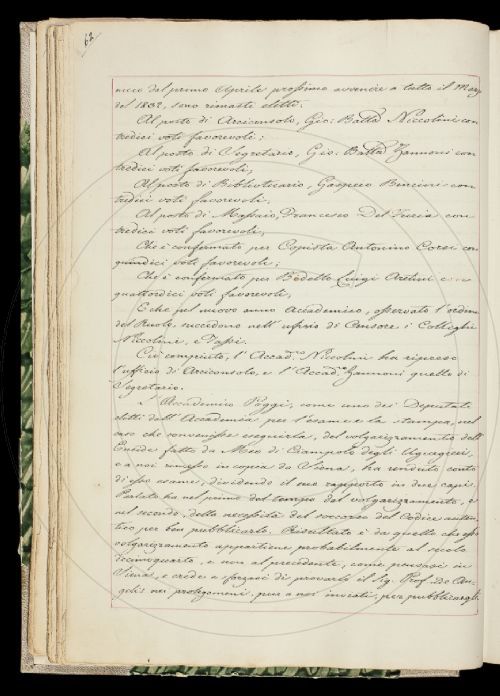 62
mico del primo Aprile prossimo avvenire a tutto il Marzo
del 1832, sono rimasti eletti.
Al posto di Arciconsolo, Gio: Batta Niccolini con
tredici voti favorevoli;
Al posto di Segretario, Gio. Batta Zannoni con
tredici voti favorevoli,
Al posto di Bibliotecario, Gaspero Bencini con
tredici voti favorevoli,
Al posto di Massaio, Francesco Del Furia con
tredici voti favorevoli,
Che è confermato per Copista Antonino Corsi con
quindici voti favorevoli;
Che è confermato per Bidello Luigi con
quattordici voti favorevoli,
E che pel nuovo anno Accademico, osservato l'ordine
del Ruolo succedono nell' ufizio di Censore i Colleghi
Niccolini, e
Ciò compiuto, l'Accad.co Niccolini ha ripreso
l'ufficio di Arciconsolo, e l'Accad.co Zannoni quello di
Segretario.
L'Accademico Poggi, come uno dei Deputati
eletti dall' Accademia per l'esame e la stampa, nel
caso che convenisse eseguirla, del volgarizzamento dell'
Eneide fatto da Meo di Ciampolo degli Ugurgieri,
e a noi rimesso in copia da Siena, ha renduto conto
di esso esame, dividendo il suo rapporto in due capi.
Parlato ha nel primo del tempo del volgarizzamento, e
nel secondo, della necessità del soccorso del Codice auten
tico per ben pubblicarlo. Risultato è da quello che esso
volgarizzamento appartiene probabilmente al secolo
decimoquarto, e non al precedente, come pensasi in
Siena, e crede e sforzasi di provarlo il Sig. Prof. De An
gelis nei prolegomeni, pur a noi inviati, per pubblicargli